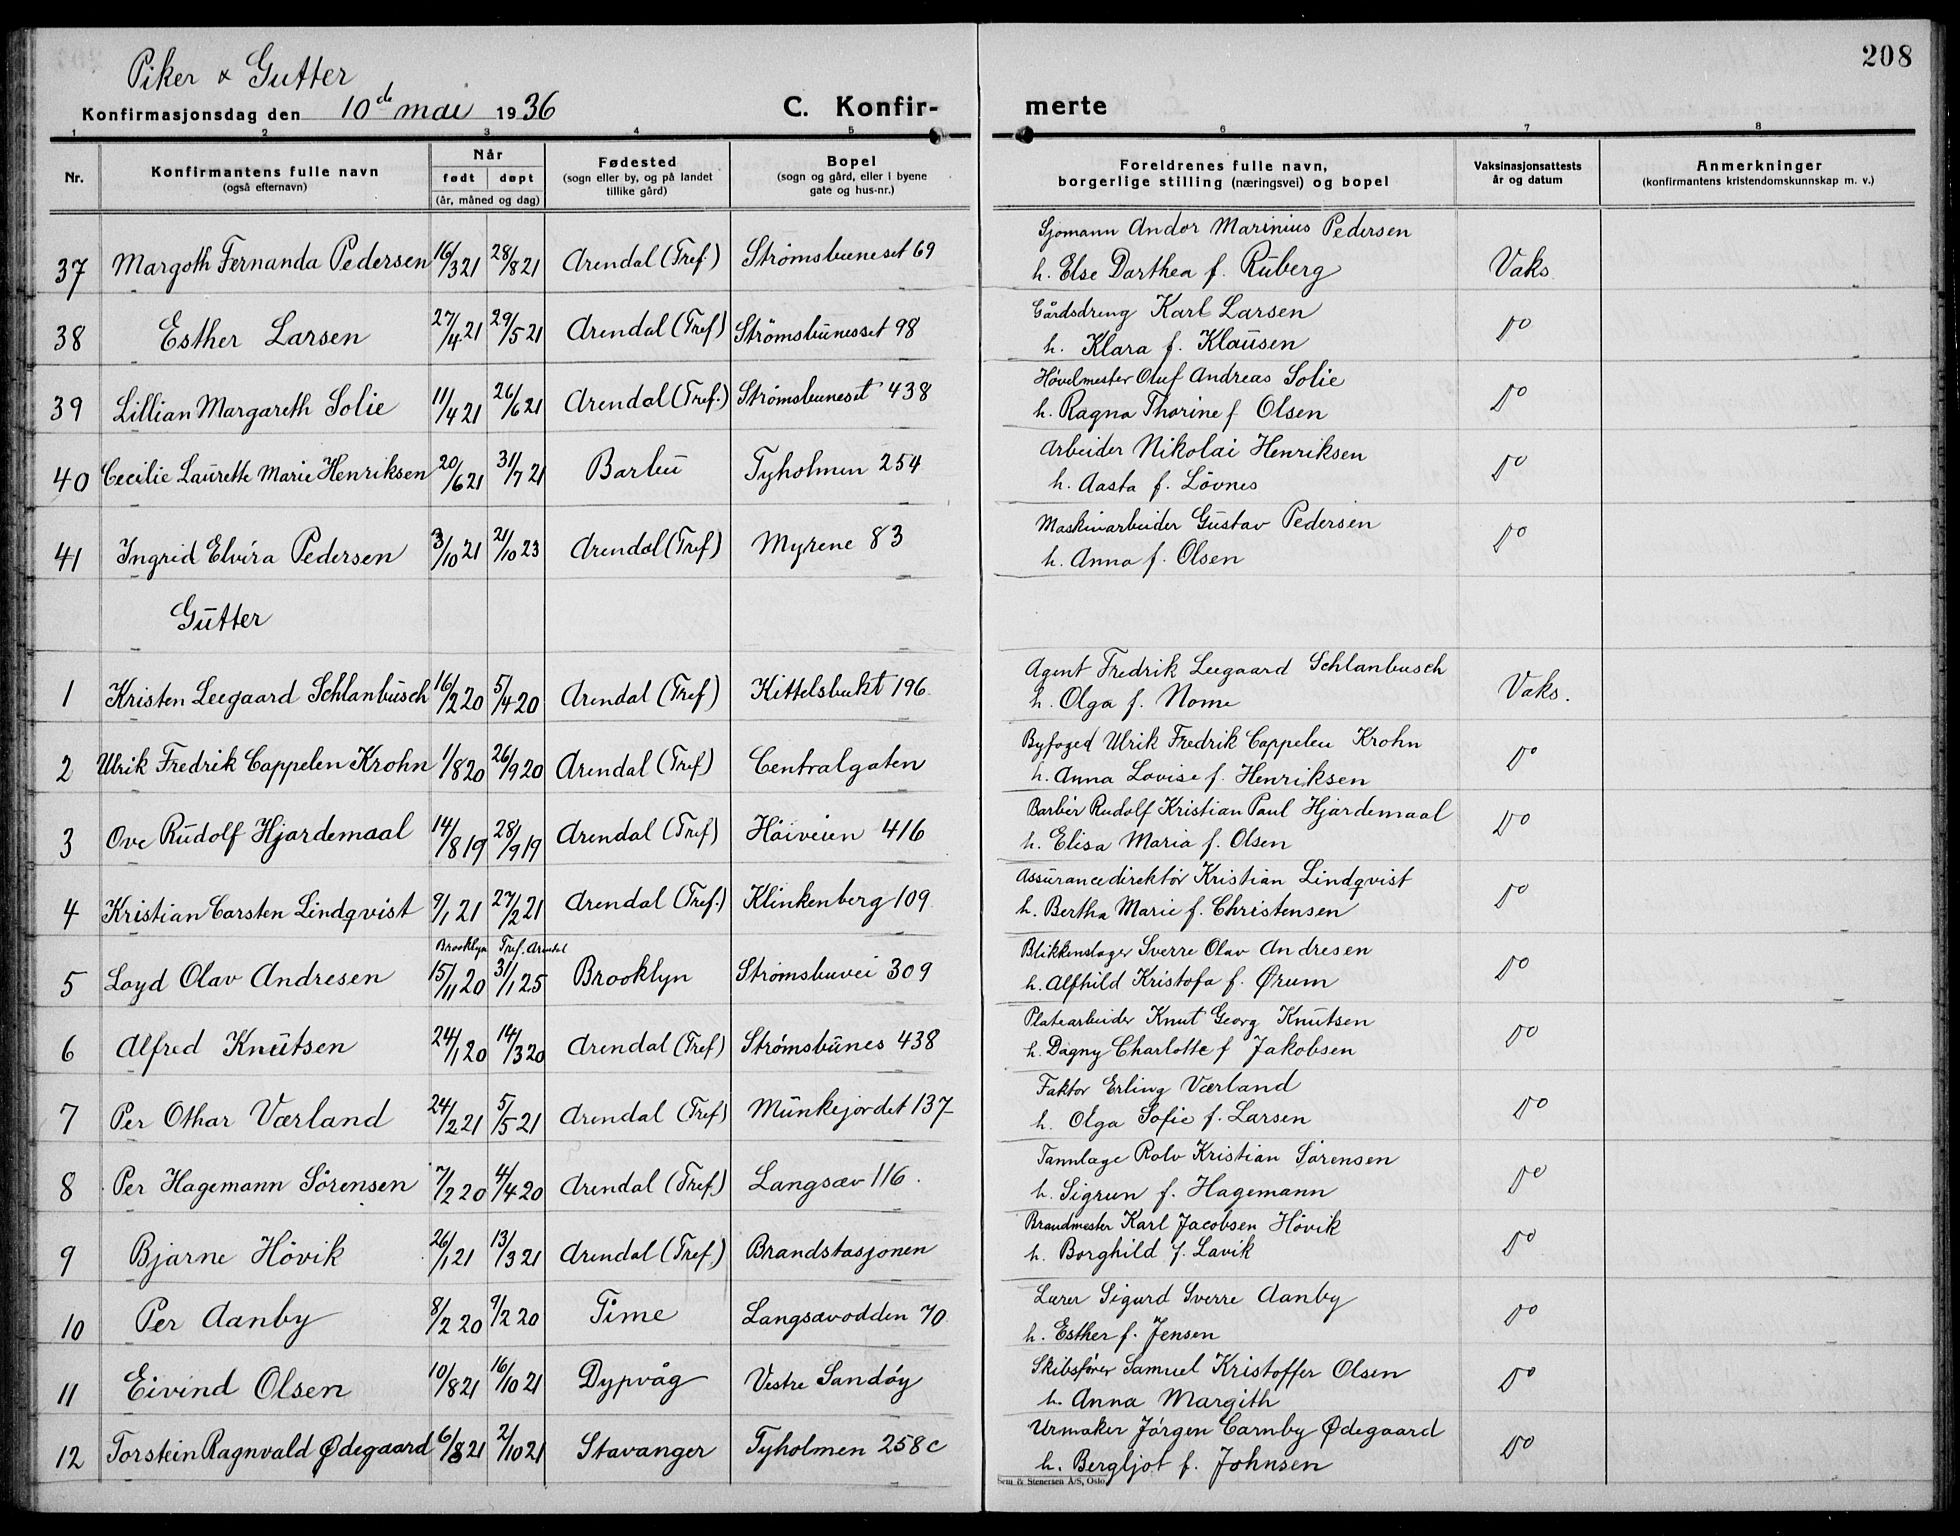 208
Piker & Gutter
Konfirmasjonsdag den 10de mai 1936 C. Konfir- merte
1 2 3 4 5 6 7 8
Nr. Konfirmantens fulle navn (også efternavn) Når født døpt (år, måned og dag) Fødested (sogn eller by, og på landet tillike gård) Bopel (sogn og gård, eller i byene gate og hus-nr.) Foreldrenes fulle navn, borgerlige stilling (næringsvei) og bopel Vaksinasjonsattests år og datum Anmerkninger (konfirmantens kristendomskunnskap m. v.)
37 Margoth Fernanda Pedersen 16/3 21 28/8 21 Arendal (Tref.) Strømsbuneset 69 Sjømann Andor Marinius Pedersen
h. Else Darthea f. Ruberg Vaks
38 Esther Larsen 27/4 21 29/5 21 Arendal (Tref) Strömsbunesset 98 Gårdsdreng Karl Larsen
h. Klara f. Klausen Do
39 Lillian Margareth Solie 11/4 21 26/6 21 Arendal (Tref.) Strømsbuneset 438 Høvelmester Oluf Andreas Solie
h. Ragna Thorine f Olsen Do
40 Cecilie Laurette Marie Henriksen 20/6 21 31/7 21 Barbu Tyholmen 254 Arbeider Nikolai Henriksen
h. Aasta f. Lövnes Do
41 Ingrid Elvira Pedersen 3/10 21 21/10 23 Arendal (Tref) Myrene 83 Maskinarbeider Gustav Pedersen
h. Anna f. Olsen Do
Gutter
1 Kristen Leegaard Schlanbusch 16/2 20 5/4 20 Arendal (Tref) Kittelsbukt 196 Agent Fredrik Leegaard Schlanbusch
h. Olga f. Nome Vaks.
2 Ulrik Fredrik Cappelen Krohn 1/8 20 26/9 20 Arendal (Tref) Centralgaten Byfoged Ulrik Fredrik Cappelen Krohn
h. Anna Lovise f. Henriksen Do
3 Ove Rudolf Hjardemaal 14/8 19 28/9 19 Arendal (Tref) Höiveien 416 Barbér Rudolf Kristian Paul Hjardemaal
h. Elisa Maria f. Olsen Do
4 Kristian Carsten Lindqvist 9/1 21 27/2 21 Arendal (Tref.) Klinkenberg 109 Assurancedirektör Kristian Lindqvist
h. Bertha Marie f. Christensen Do
Brooklyn Tref. Arendal
5 Loyd Olav Andresen 15/11 20 31/1 25 Brooklyn Strømsbuvei 309 Blikkenslager Sverre Olav Andresen
h. Alfhild Kristofa f. Ørum Do
6 Alfred Knutsen 24/1 20 14/3 20 Arendal (Tref) Strømsbunes 438 Platearbeider Knut Georg Knutsen
h. Dagny Charlotte f Jakobsen Do
7 Per Othar Værland 24/2 21 5/5 21 Arendal (Tref) Munkejordet 137 Faktor Erling Værland
h. Olga Sofie f. Larsen Do
8 Per Hagemann Sörensen 7/2 20 4/4 20 Arendal (Tref) Langsæv 116. Tannlæge Rolv Kristian Sörensen
h. Sigrun f. Hagemann Do
9 Bjarne Hövik 26/1 21 13/3 21 Arendal (Tref.) Brandstasjonen Brandmester Karl Jacobsen Hövik
h. Borghild f. Lavik Do
10 Per Aanby 8/2 20 9/2 20 Time Langsævodden 70 Lærer Sigurd Sverre Aanby
h. Esther f. Jensen Do
11 Eivind Olsen 10/8 21 16/10 21 Dypvåg Vestre Sandøy Skibsfører Samuel Kristoffer Olsen
h. Anna Margith Do
12 Torstein Ragnvald Ødegaard 6/8 21 2/10 21 Stavanger Tyholmen 258c Urmaker Jörgen Carnby Ødegaard
h. Bergljot f. Johnsen Do
Sem & Stenersen A/S, Oslo